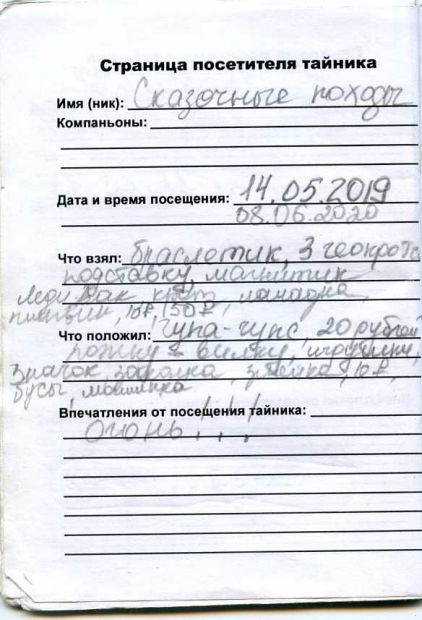 Страница посетителя тайника
Имя (ник): Сказочные походы
Компаньоны:
Дата и время посещения: 14.05.2019
08.06.2020
Что взял: браслетик, 3
подставку, магнитик
помадка,
пингвин, 10₽, 150₽,
Что положил: Чупа-чупс, 20 рублей
ложку & вилку,
значок, заколка, змейка,
бусы, машинка
Впечатления от посещения тайника:
Огонь!!!